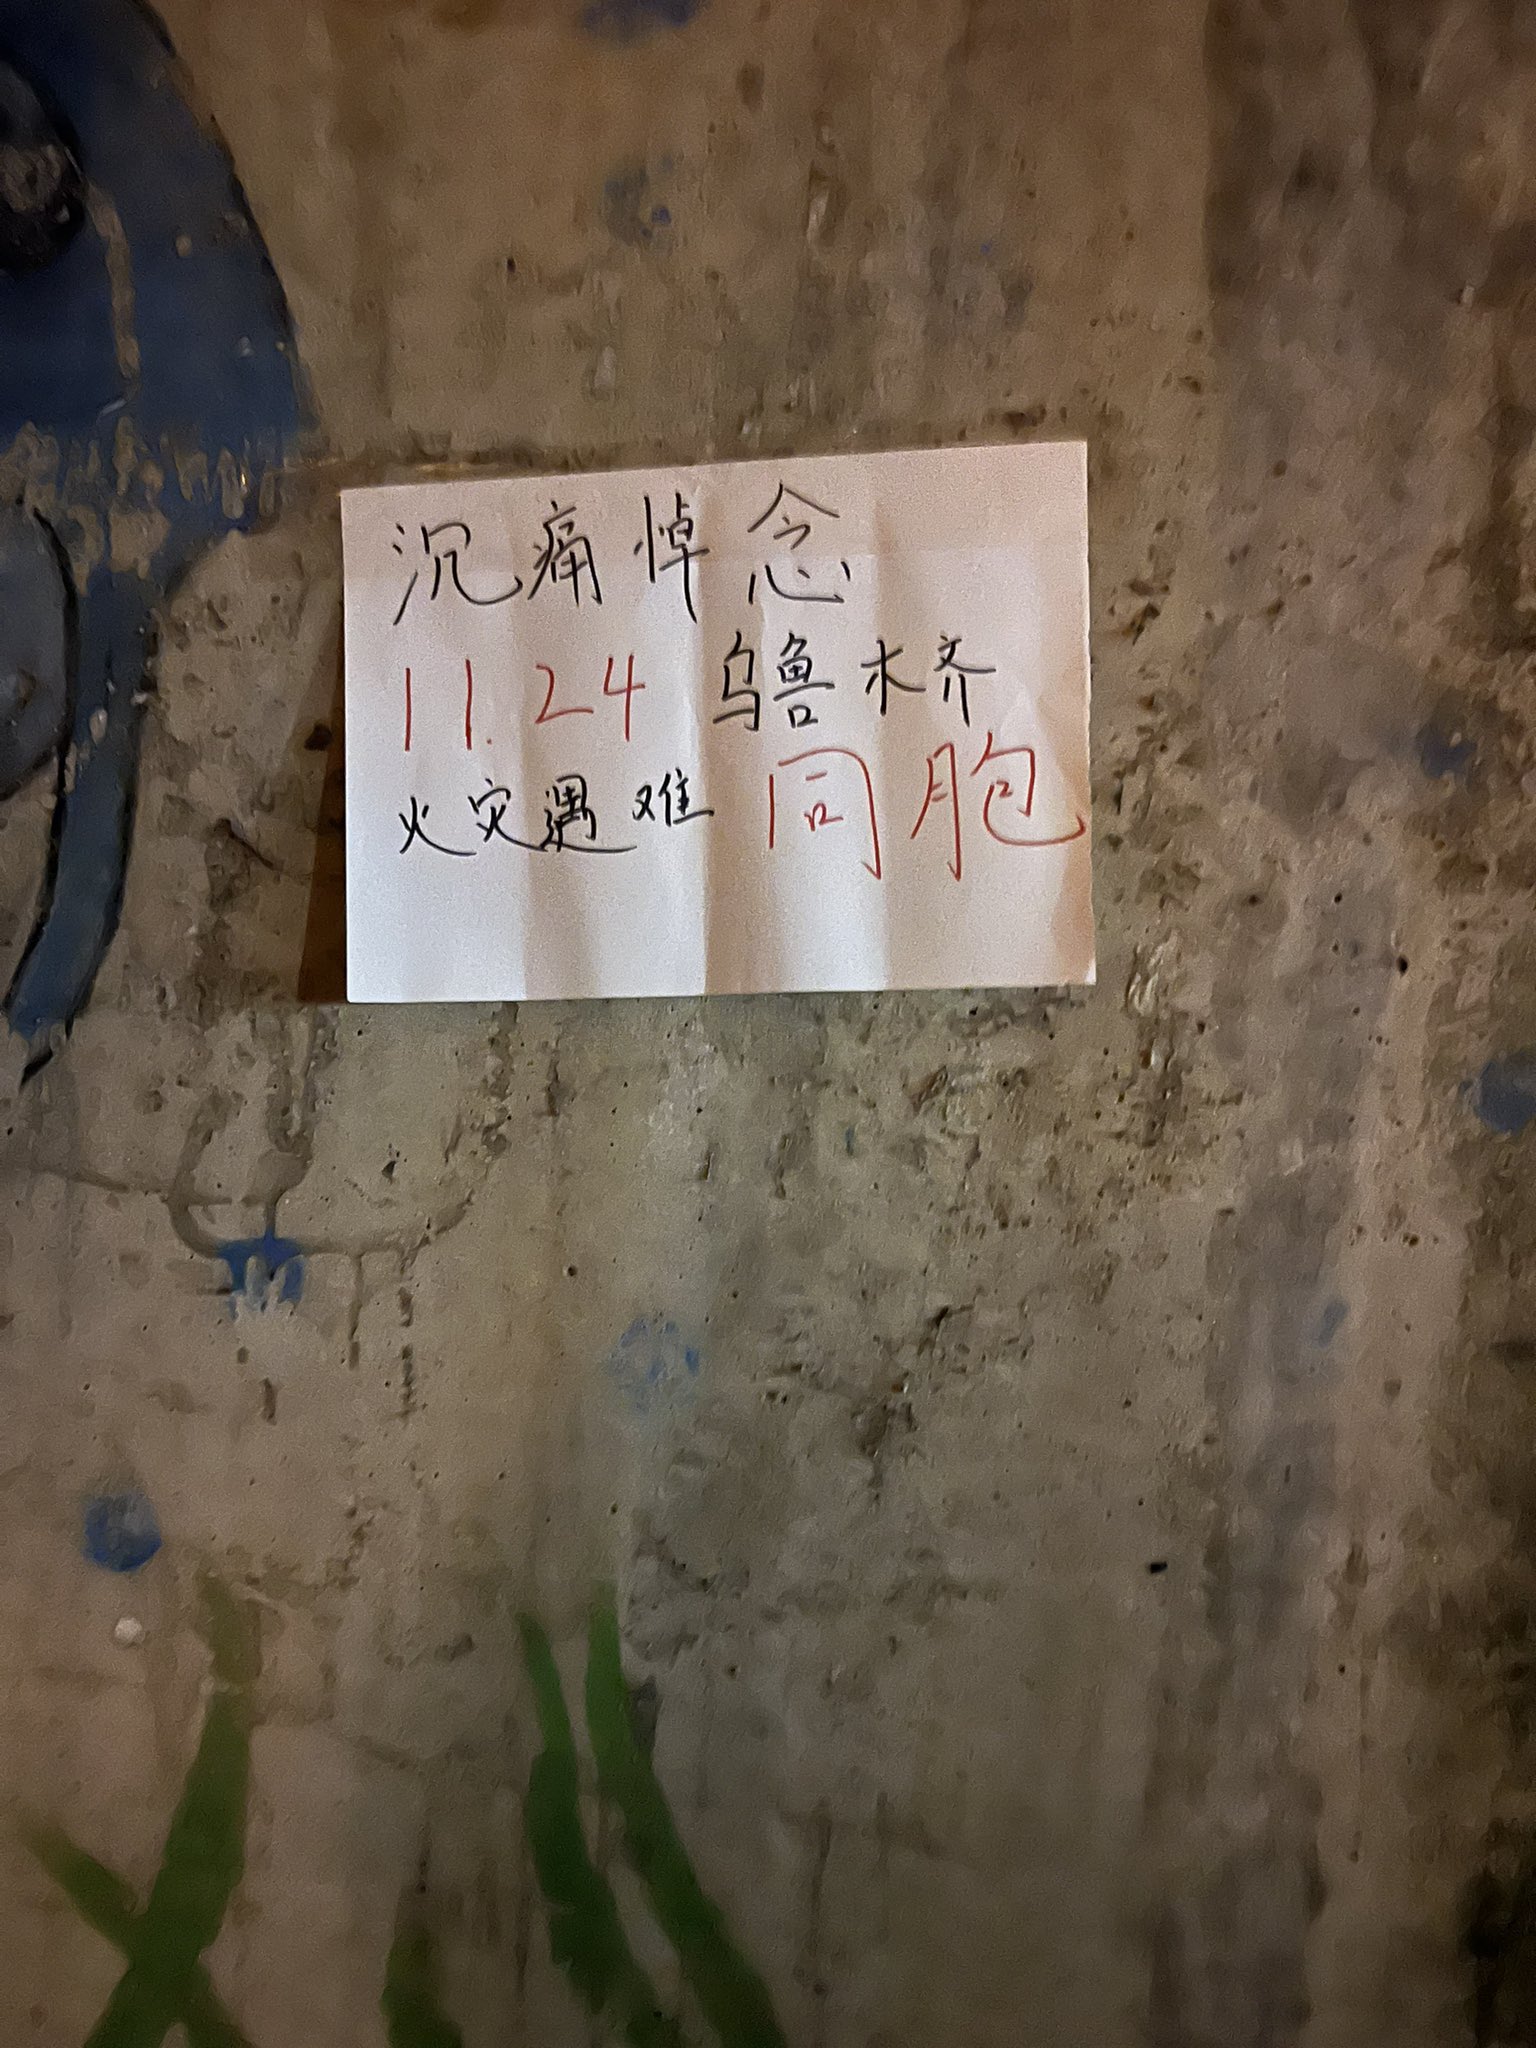 沉痛悼念
11.24 乌鲁木齐
火灾遇难 同胞